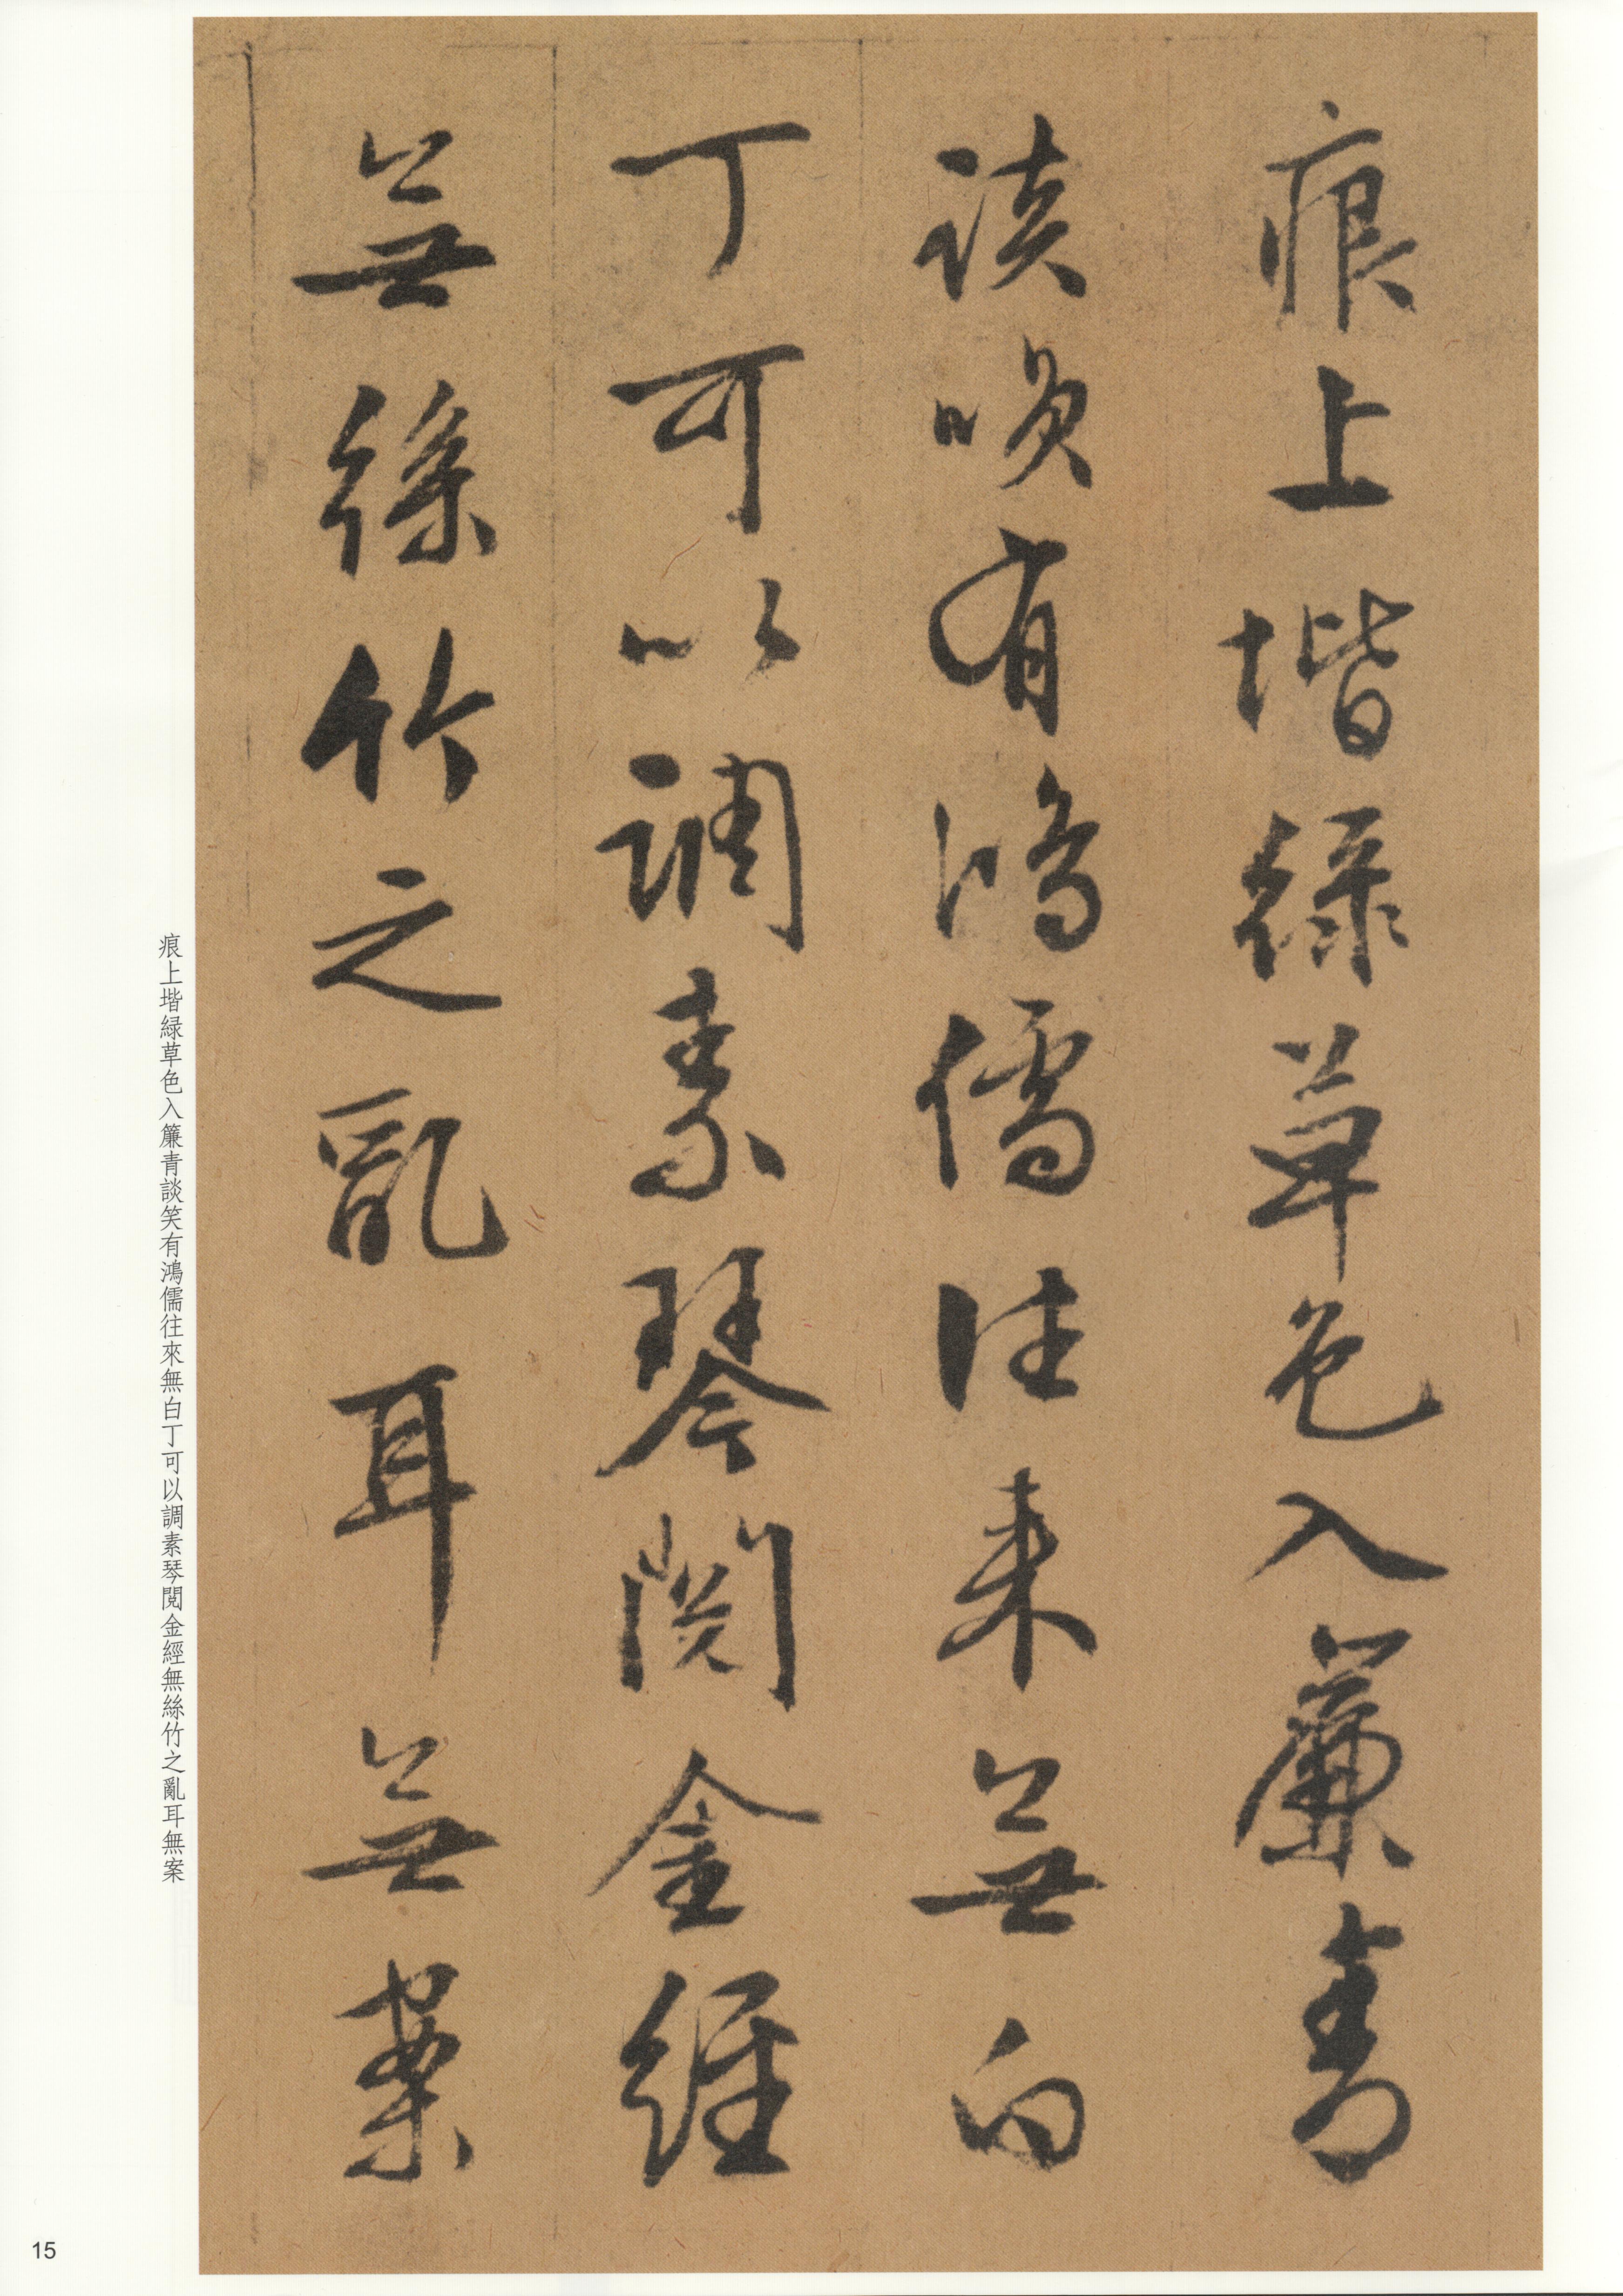 痕上堦緑草色入簾青
談笑有鴻儒往来無白
丁可以調素琴閱金經
無絲竹之亂耳無案
痕上堦緑草色入簾青談笑有鴻儒往來無白丁可以調素琴閱金經無絲竹之亂耳無案
15